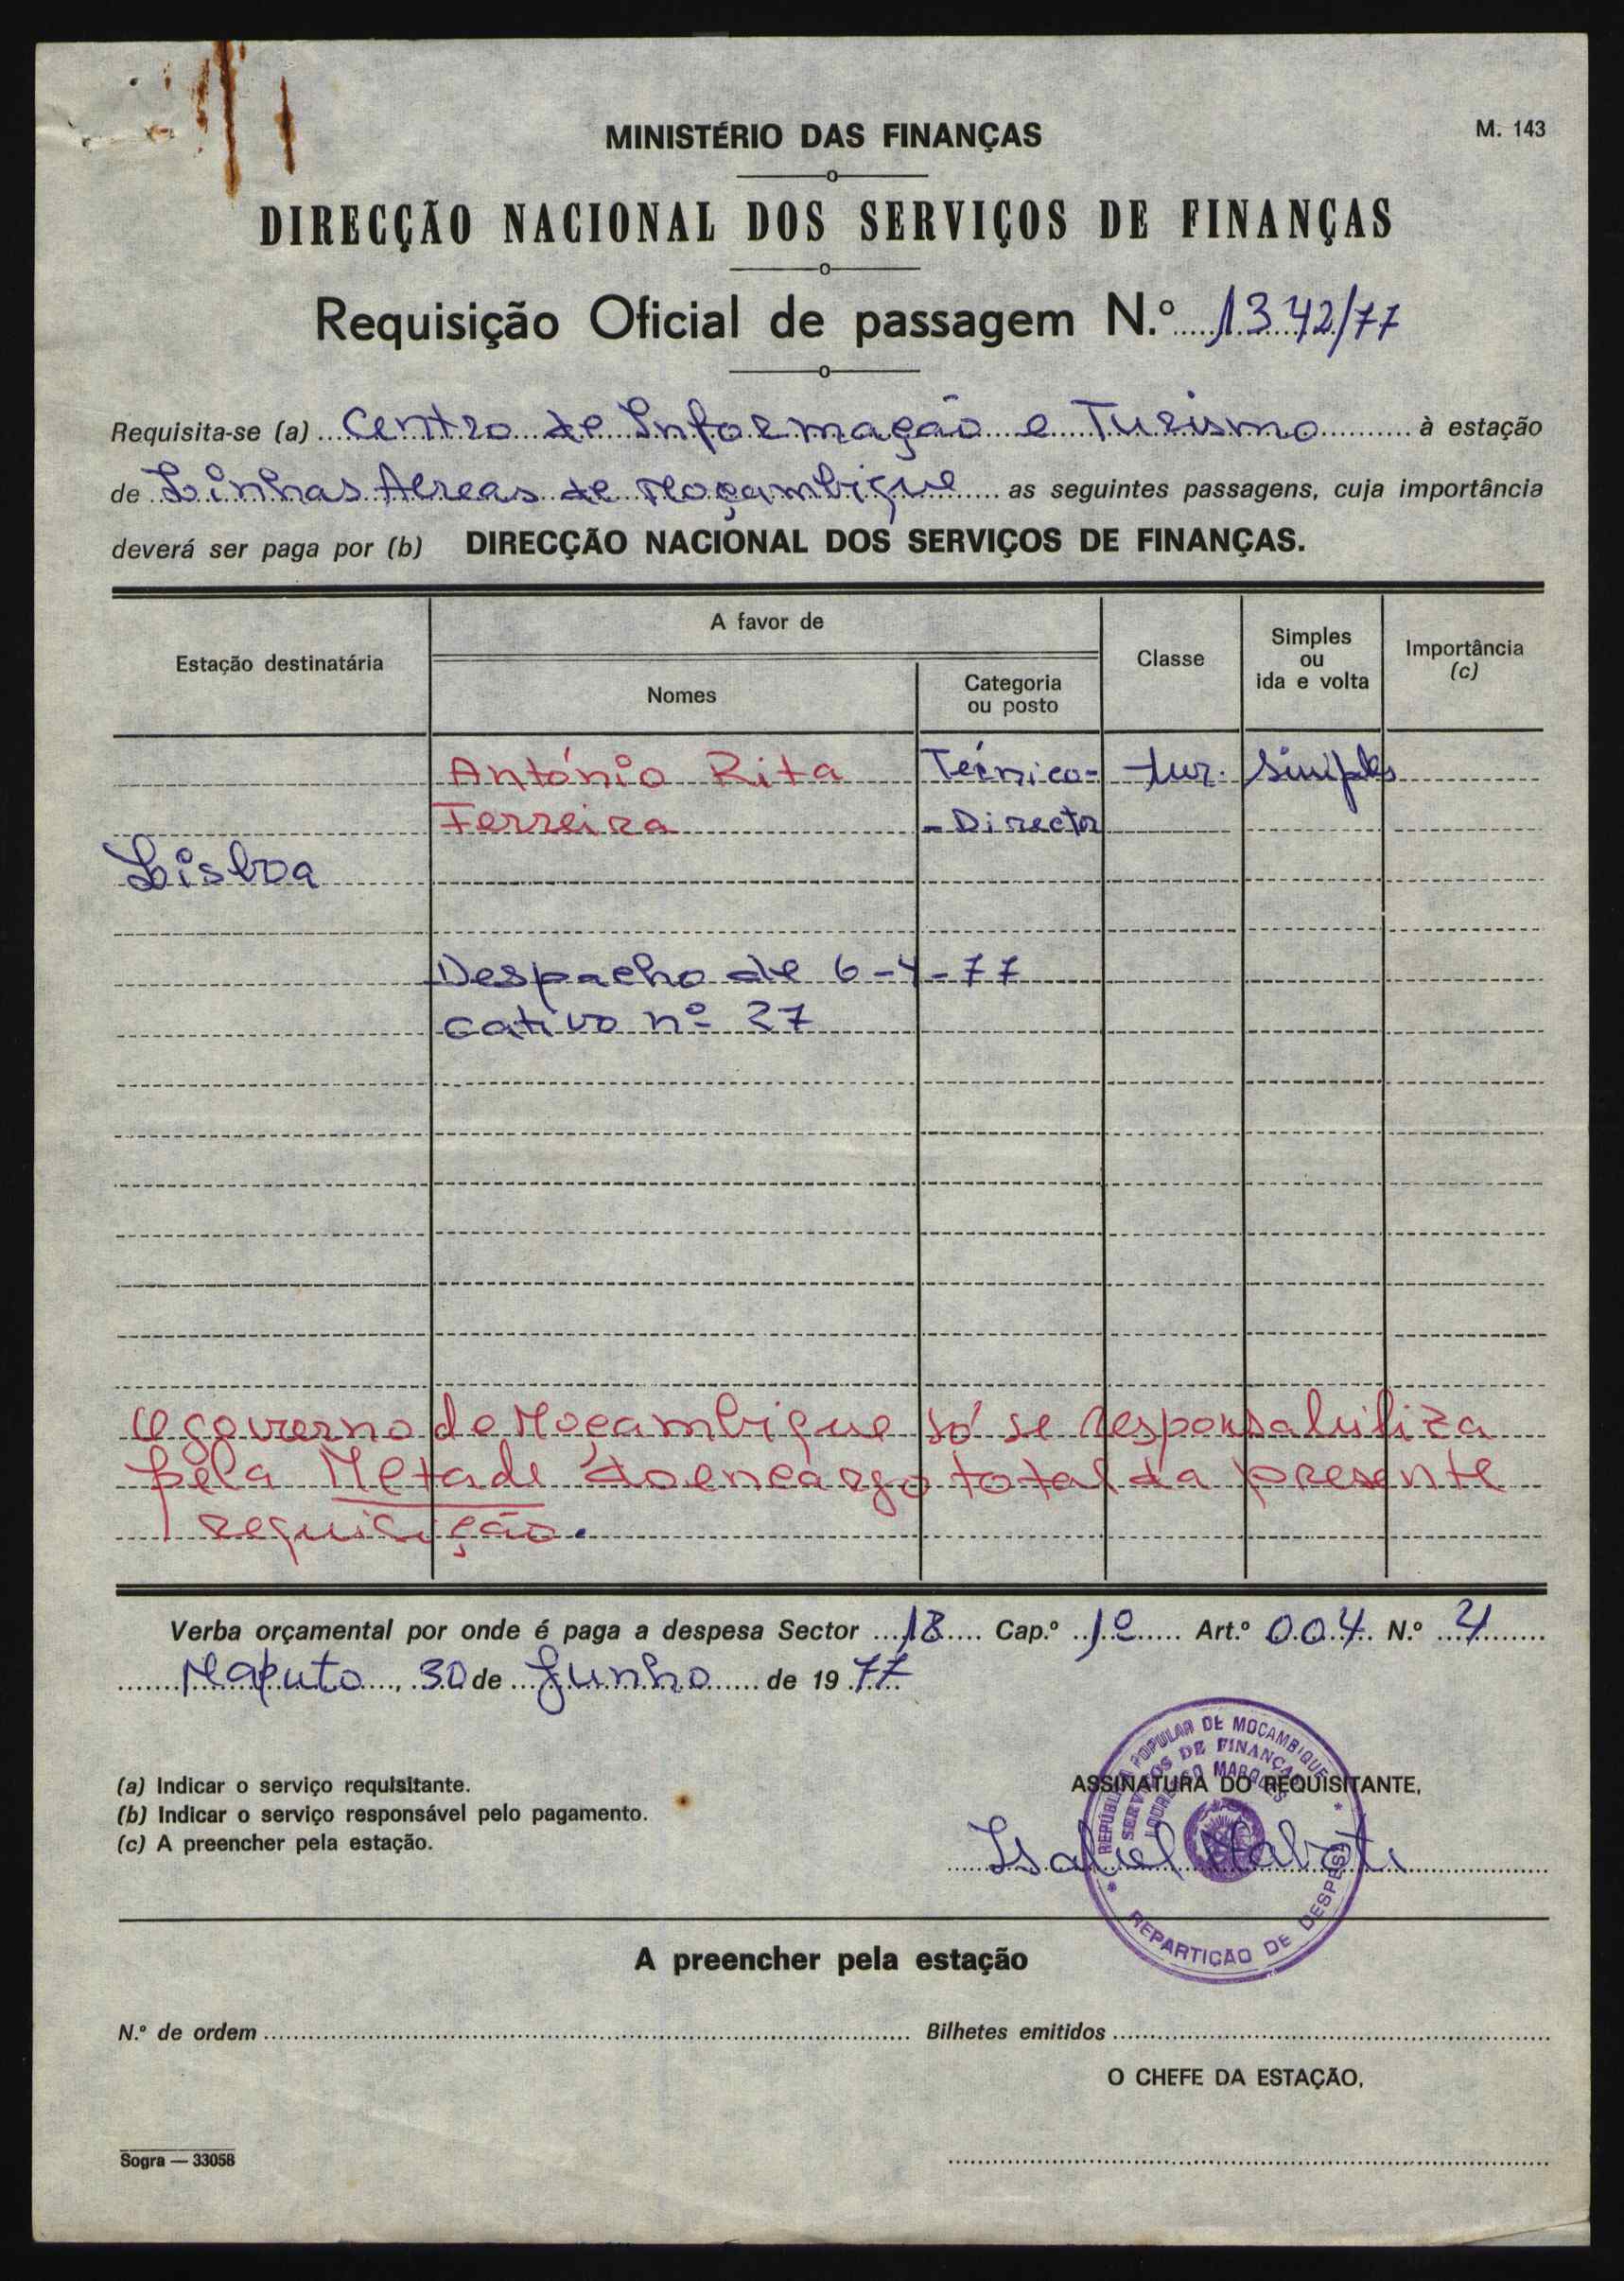 MINISTÉRIO DAS FINANÇAS
M. 143
DIRECÇÃO NACIONAL DOS SERVIÇOS DE FINANÇAS
Requisição Oficial de passagem N.º 1342/77
Requisita-se (a) Centro de Informação e Turismo à estação
de Linhas Aereas de Moçambique as seguintes passagens, cuja importância
deverá ser paga por (b) DIRECÇÃO NACIONAL DOS SERVIÇOS DE FINANÇAS.
Estação destinatária
A favor de
Nomes
Categoria
ou posto
Classe
Simples
ou
ida e volta
Importância
(c)
António Rita Técnico- tur. Simples
Ferreira - Director
Lisboa
Despacho de 6-4-77
cativo nº 27
O governo de Moçambique só se responsabiliza
pela Metade do encargo total da presente
requisição.
Verba orçamental por onde é paga a despesa Sector 18 Cap.º 1º Art.º 004 N.º 4
Maputo, 30 de Junho de 1977
(a) Indicar o serviço requisitante.
(b) Indicar o serviço responsável pelo pagamento.
(c) A preencher pela estação.
REPÚBLICA POPULAR DE MOÇAMBIQUE
SERVIÇOS DE FINANÇAS
LOURENÇO MARQUES
REPARTIÇÃO DE DESPESA
ASSINATURA DO REQUISITANTE,
Isabel
A preencher pela estação
N.º de ordem
Bilhetes emitidos
O CHEFE DA ESTAÇÃO,
Sogra — 33058